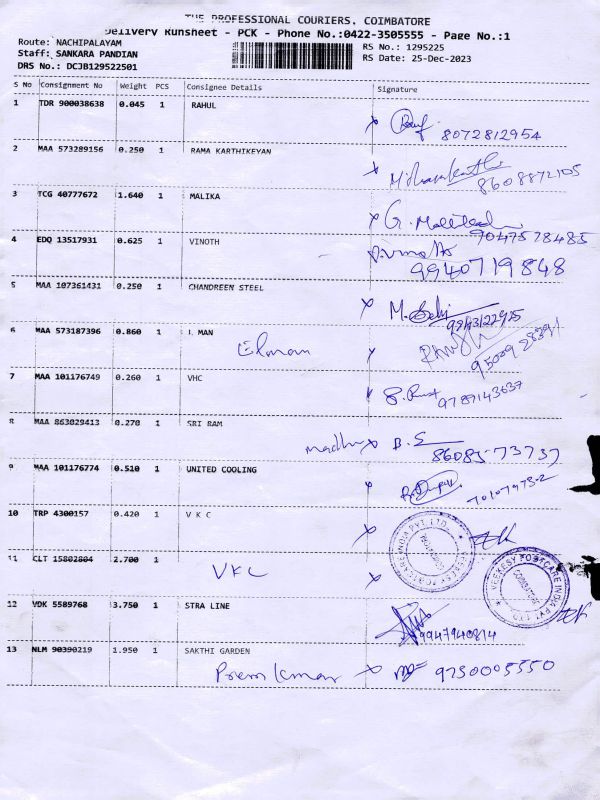 THE PROFESSIONAL COURIERS, COIMBATORE
Delivery Runsheet - PCK - Phone No.:0422-3505555 - Page No.:1
Route: NACHIPALAYAM
RS No.: 1295225
Staff: SANKARA PANDIAN
RS Date: 25-Dec-2023
DRS No.: DCJB129522501
S No Consignment No Weight PCS Consignee Details Signature
1 TDR 900038638 0.045 1 RAHUL
8072812954
2 MAA 573289156 0.250 1 RAMA KARTHIKEYAN
8608872105
3 TCG 40777672 1.640 1 MALIKA
9047578485
4 EDQ 13517931 0.625 1 VINOTH
9940719848
5 MAA 107361431 0.250 1 CHANDREEN STEEL
6 MAA 573187396 0.860 1 I. MAN
Elman
7 MAA 101176749 0.260 1 VHC
9787143637
8 MAA 863029413 0.270 1 SRI RAM
madhu B. S
86085-73737
9 MAA 101176774 0.510 1 UNITED COOLING
10 TRP 4300157 0.420 1 V K C
11 CLT 15802804 2.700 1
VKC
12 VDK 5589768 3.750 1 STRA LINE
9947940814
13 NLM 90390219 1.950 1 SAKTHI GARDEN
Prem Kumar 9750005550